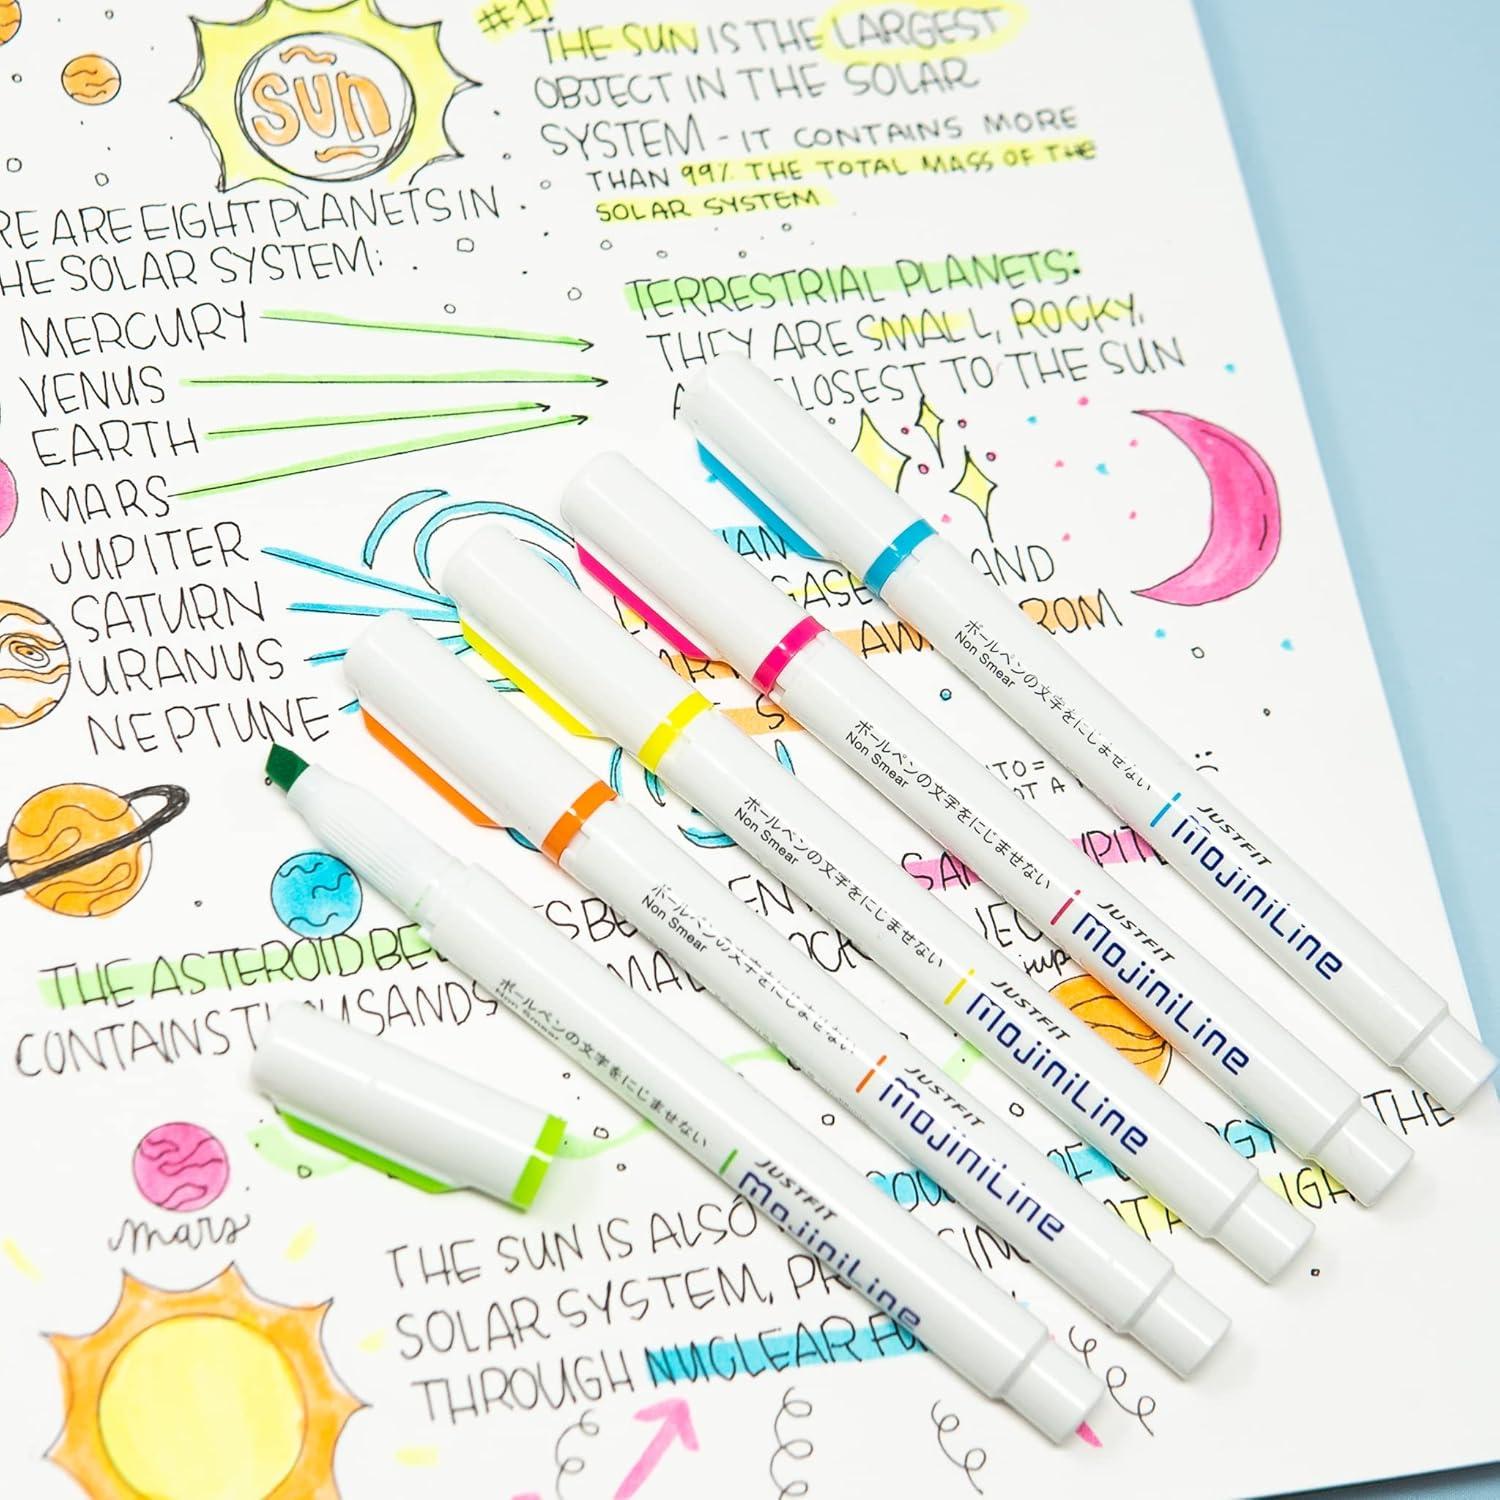 #1!
THE SUN IS THE LARGEST
OBJECT IN THE SOLAR
SYSTEM - IT CONTAINS MORE
THAN 99% THE TOTAL MASS OF THE
SOLAR SYSTEM
sun
RE ARE EIGHT PLANETS IN
HE SOLAR SYSTEM:
MERCURY
VENUS
EARTH
MARS
JUPITER
SATURN
URANUS
NEPTUNE
TERRESTRIAL PLANETS:
THEY ARE SMALL, ROCKY,
CLOSEST TO THE SUN
AND
ROM
TO =
A
THE ASTEROID BE
CONTAINS THOUSANDS
jup
mars
THE
THE SUN IS ALSO
SOLAR SYSTEM, PR
THROUGH NUCLEAR FU
ボールペンの文字をにじませない
Non Smear
JUSTFIT
MojiniLine
ボールペンの文字をにじませない
Non Smear
JUSTFIT
MojiniLine
ボールペンの文字をにじませない
Non Smear
JUSTFIT
MojiniLine
ボールペンの文字をにじませない
Non Smear
JUSTFIT
MojiniLine
ボールペンの文字をにじませない
Non Smear
JUSTFIT
MojiniLine